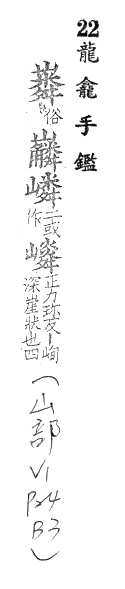 22 龍龕手鑑
俗 嶙 二或作 嶙 正力珍反丨峋深崖狀也四
(山部 V1 P24 B3)